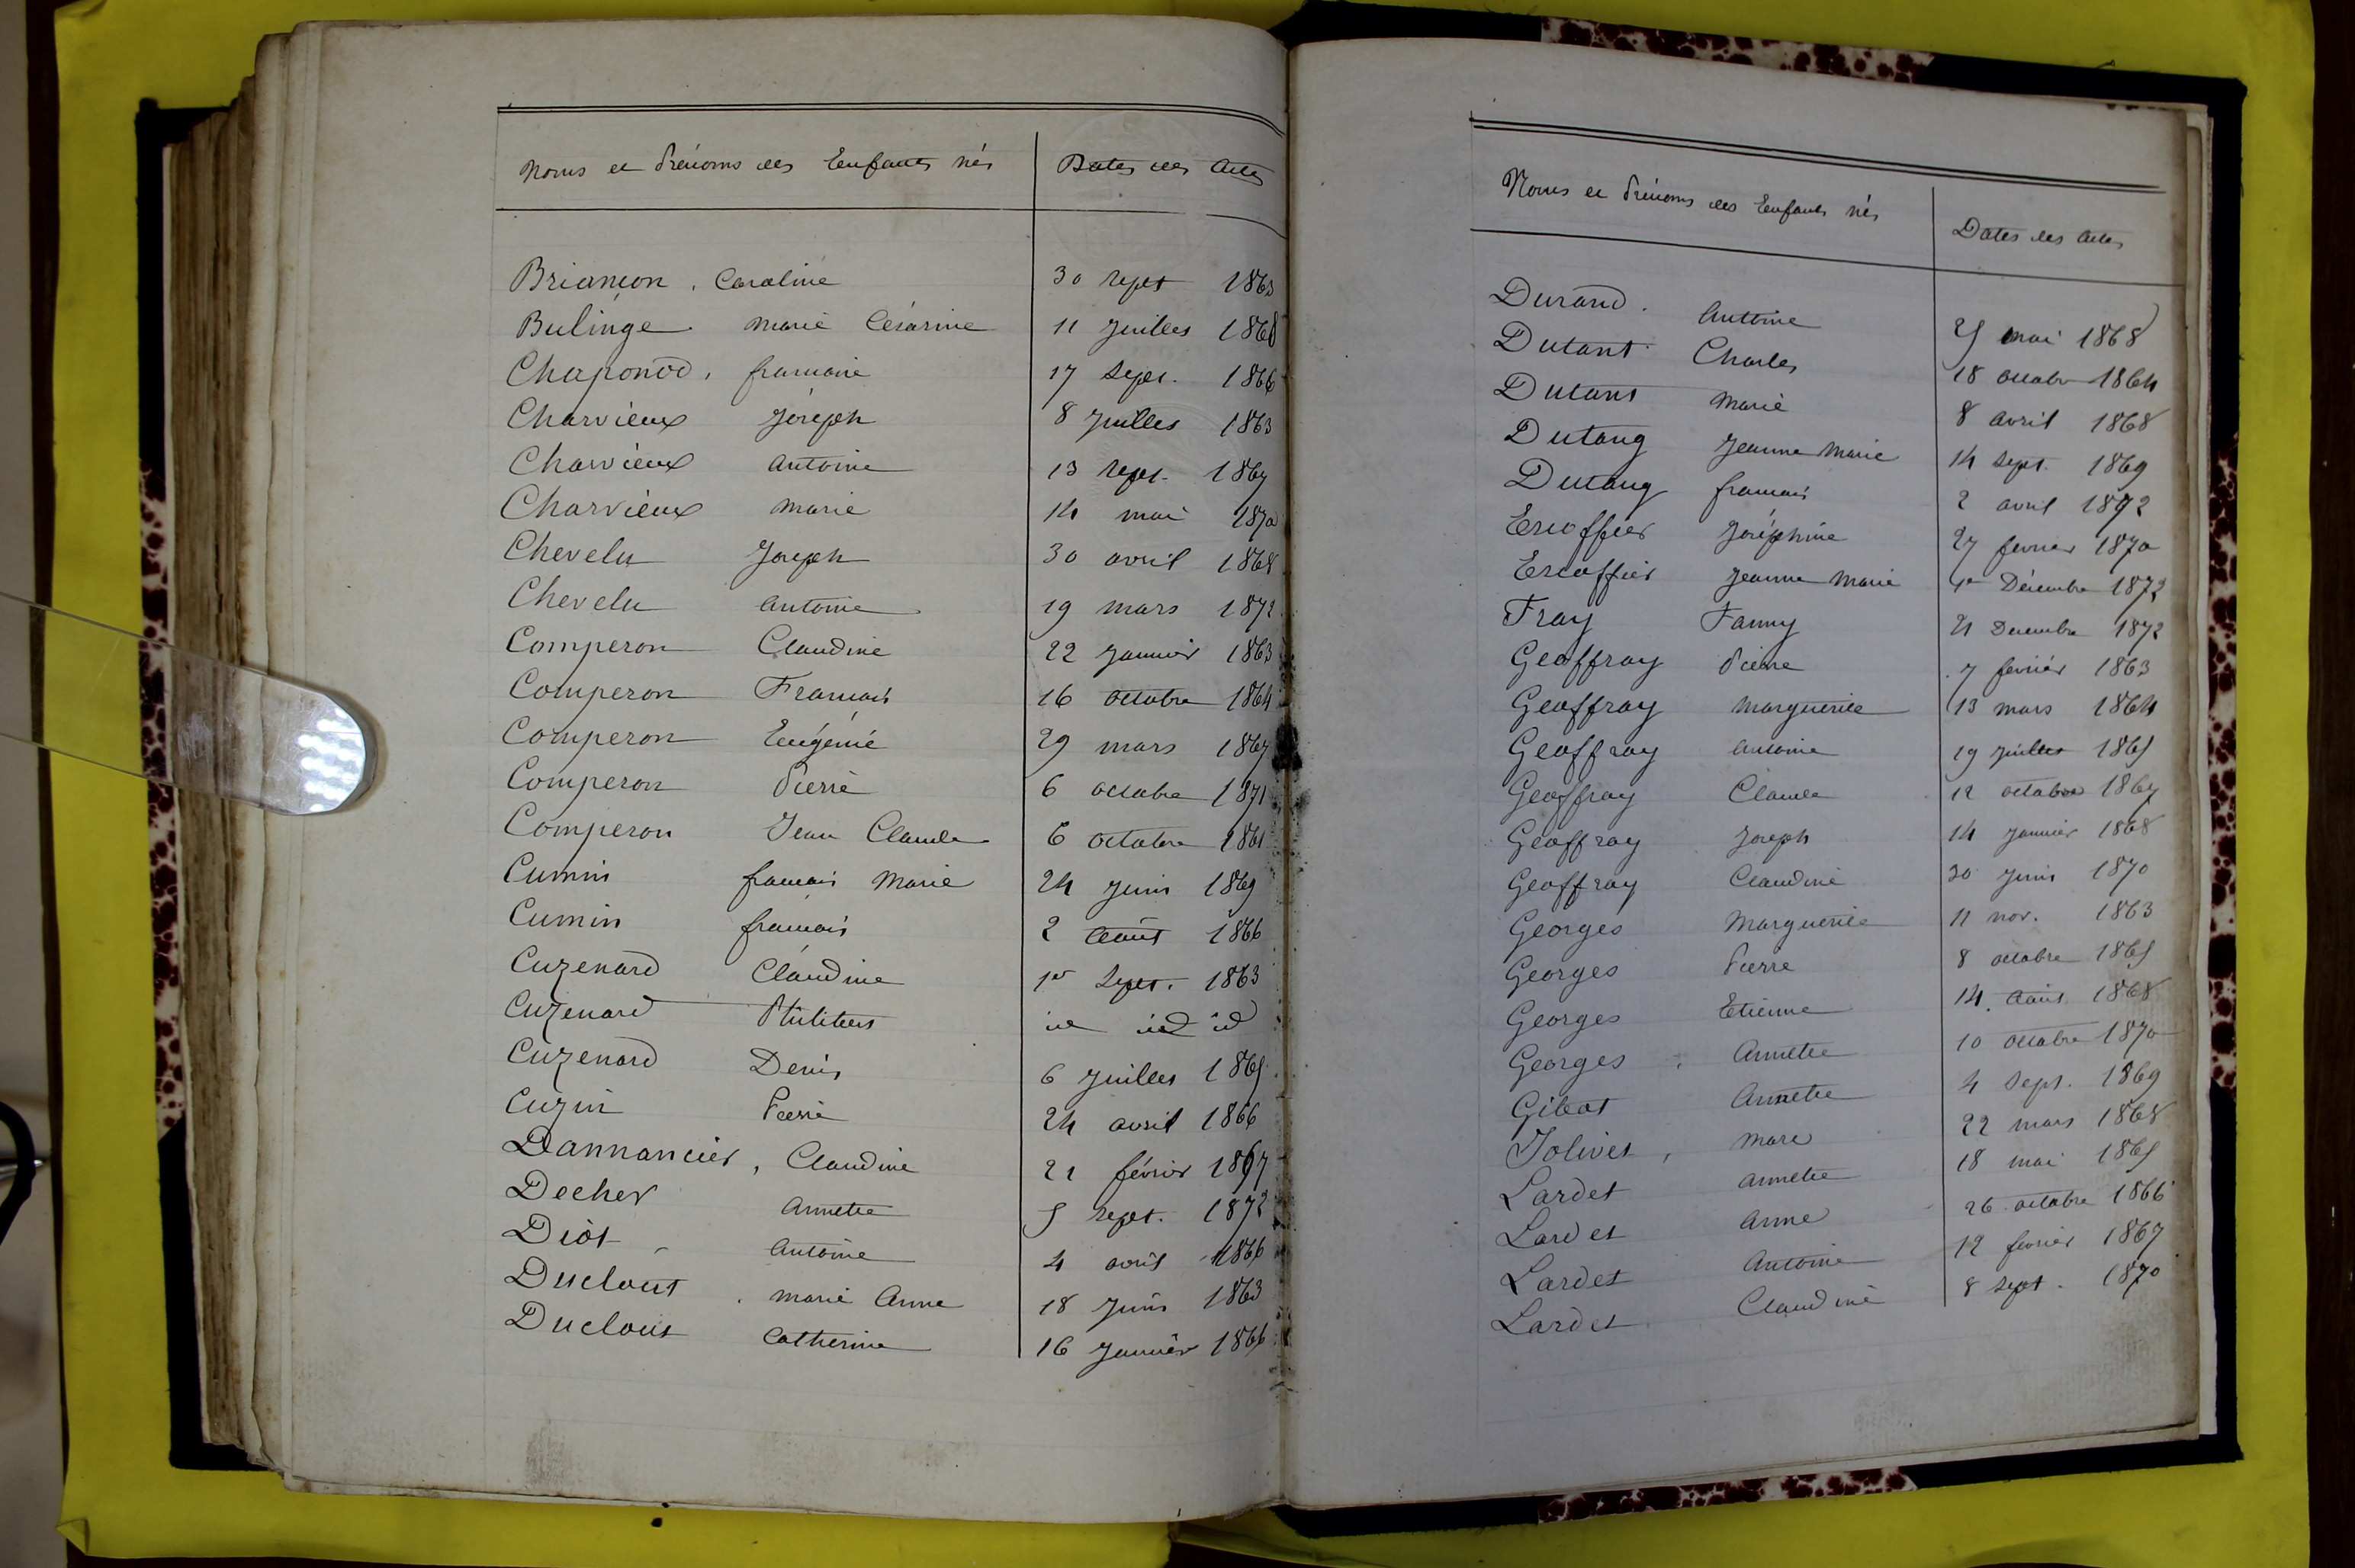 Noms et Prénoms des Enfants nés Dates des Actes
Briançon . Caroline 30 sept 1865
Bulinge . Marie Césarine 11 Juillet 1868
Chaponod . françoise 17 Sept. 1866
Charvieux Joseph 8 Juillet 1863
Charvieux Antoine 13 Sept. 1867
Charvieux Marie 14 mai 1870
Chevelu Joseph 30 avril 1868
Chevelu Antoine 19 mars 1872
Comperon Claudine 22 Janvier 1863
Comperon François 16 octobre 1864
Comperon Eugénie 29 mars 1867
Comperon Pierre 6 octobre 1871
Comperon Jean Claude 6 octobre 1861
Cumin françois Marie 24 Juin 1869
Cumin françois 2 Août 1866
Cuzenard Claudine 1er Sept. 1863
Cuzenard Philibert id id id
Cuzenard Denis 6 Juillet 1865
Cuzin Pierre 24 avril 1866
Dannancier, Claudine 21 février 1867
Decher Annette 5 Sept. 1872
Diot Antoine 4 avril 1866
Duclout . Marie Anne 18 Juin 1863
Duclout Catherine 16 Janvier 1866
Noms et Prénoms des Enfants nés Dates des Actes
Durand . Antoine 25 mai 1868
Dutant Charles 18 octobre 1864
Dutant Marie 8 avril 1868
Dutang Jeanne Marie 14 Sept. 1869
Dutang françois 2 avril 1872
Escoffier Joséphine 27 février 1870
Escoffier Jeanne Marie 1er Décembre 1872
Fray Fanny 21 Decembre 1872
Geoffray Pierre 7 février 1863
Geoffray Marguerite 13 mars 1864
Geoffray Antoine 19 Juillet 1865
Geoffray Claude 12 octobre 1867
Geoffray Joseph 14 Janvier 1868
Geoffray Claudine 30 Juin 1870
Georges Marguerite 11 nov. 1863
Georges Pierre 8 octobre 1865
Georges Etienne 14 Août 1868
Georges Annette 10 octobre 1870
Gibot Annette 4 Sept. 1869
Jolivet, Marc 22 mars 1868
Lardet Annette 18 mai 1865
Lardet Anne 26 octobre 1866
Lardet Antoine 12 février 1867
Lardet Claudine 8 Sept. 1870